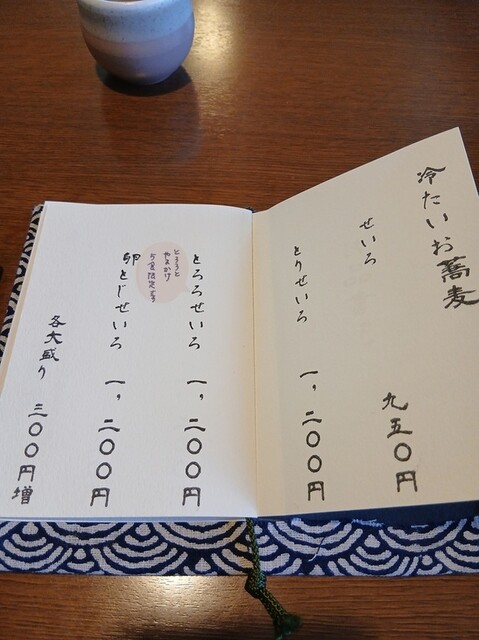 冷たいお蕎麦
せいろ 九五〇円
とりせいろ 一，二〇〇円
とろろせいろ 一，二〇〇円
とろろと
やまかけ
卵とじせいろ 一，二〇〇円
各大盛り 三〇〇円増